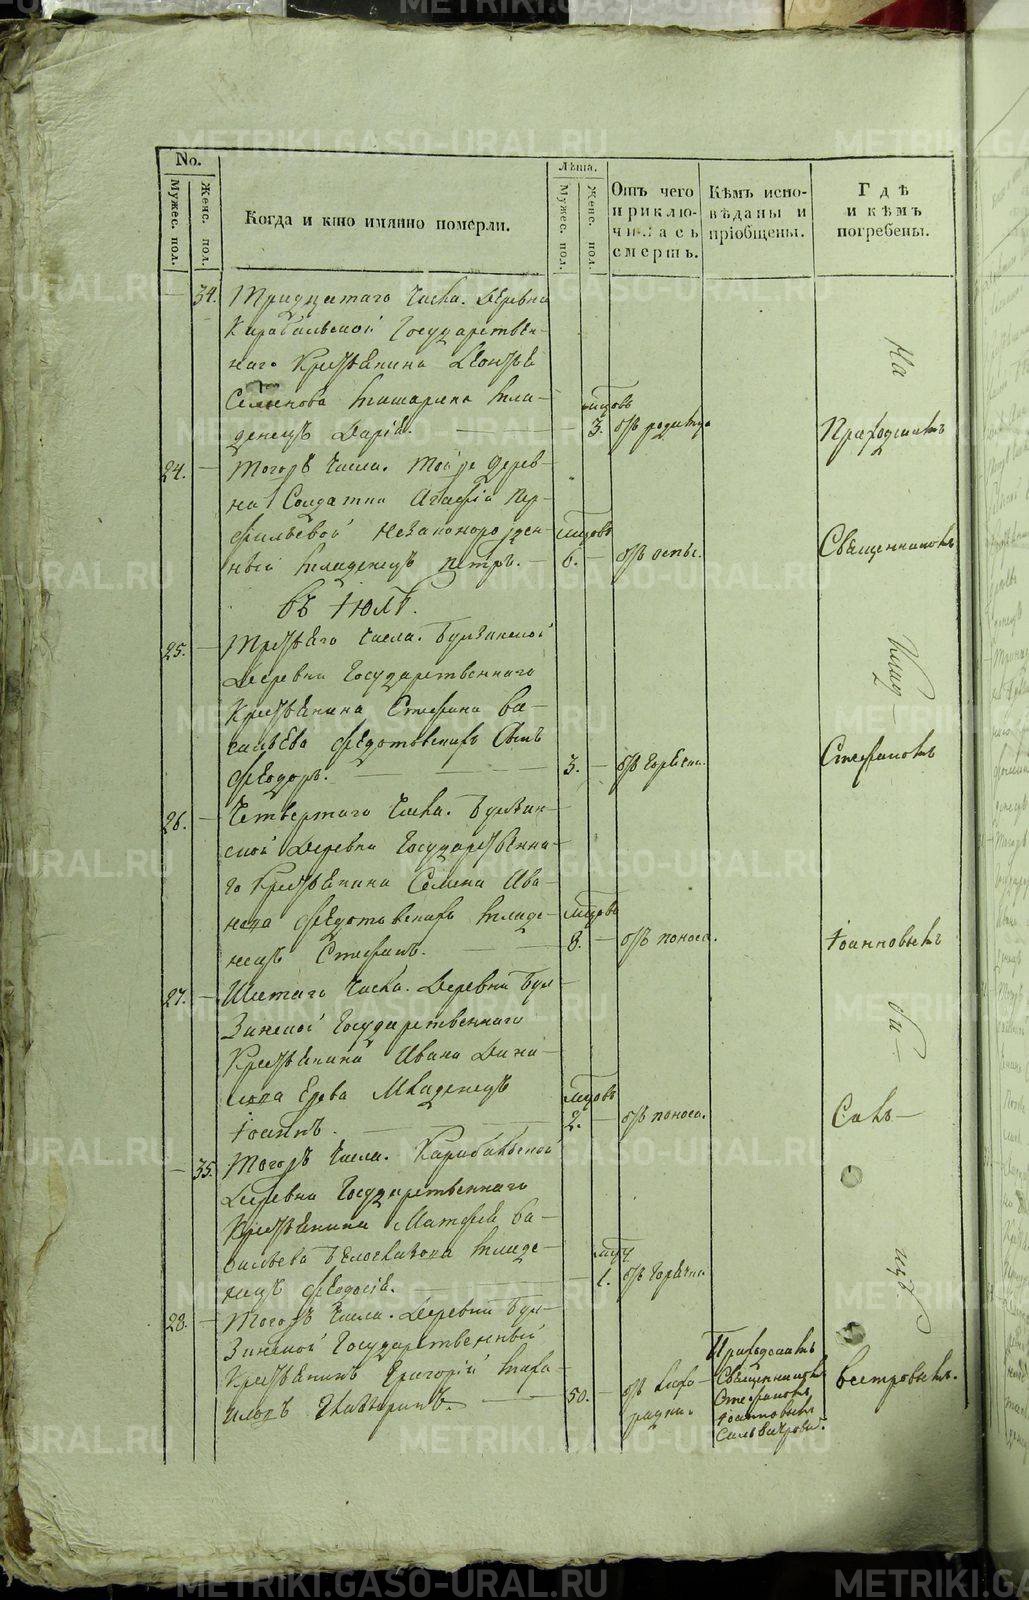 METRIKI.GASO-URAL.RU
No.
Мужес. пол.
Женс. пол.
Когда и кто имянно померли.
Лѣта.
Мужес. пол.
Женс. пол.
Отъ чего
приклю-
чилась
смерть.
Кѣмъ испо-
вѣданы и
пріобщены.
Гдѣ
и кѣмъ
погребены.
34. Тридцатаго числа. Деревни
Карабольской Государствен-
наго Крестьянина Леонтья
Семенова мла-
денецъ Дарія.
мцовъ
3. отъ родимца
24. Тогожъ числа. Тойже дерев-
ни Солдатки Агафіи Пер-
фильевой незаконорожден-
ный младенецъ Петръ.
мцовъ
6. отъ оспы.
въ Іюлѣ.
25. Третьяго числа. Булзинской
Деревни Государственнаго
Крестьянина Стефана Ва-
сильева Федотовскихъ сынъ
Феодоръ.
3. отъ горячки.
26. Четвертаго числа. Булзин-
ской Деревни Государственна-
го Крестьянина Семена Ива-
нова Федотовскихъ младе-
нецъ Стефанъ.
мцовъ
8. отъ поноса.
27. Шестаго числа. Деревни Бул-
зинской Государственнаго
Крестьянина Ивана Дани-
лова Младенецъ
Іоаннъ.
мцовъ
2. отъ поноса.
35. Тогожъ числа. Карабольской
Деревни Государственнаго
Крестьянина Матфея Ва-
сильева младе-
нецъ Феодосія.
мцъ
1. отъ горячки
28. Тогожъ числа. Деревни Бул-
зинской Государственный
Крестьянинъ Григорій Миха-
иловъ
50. отъ лихо-
радки.
Приходскимъ
Священникомъ
Стефаномъ
Іоанновымъ
На
Приходскимъ
Священникомъ
Клад-
Стефаномъ
Іоанновымъ
би-
Силь-
щѣ
вестровымъ.